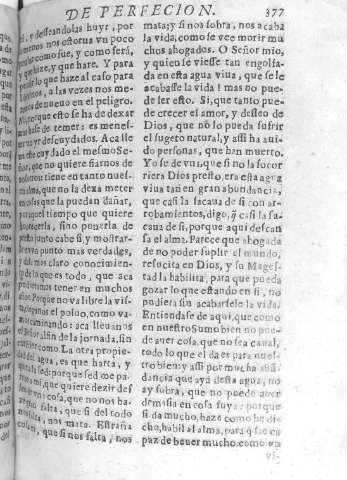 DE PERFECION. 377
y desseandolas huyr, por
menos nos estorua vn poco
como fue, y como será,
y que haze, y que hare. Y para
lo que haze al caso para
a las vezes nos me-
de nueuo en el peligro.
porque esto se ha de dexar
de temer: es menes-
yr descuydados. Aca lle-
este cuydado el mesmo Se-
que no quiere fiarnos de
tiene en tanto nues-
alma, que no la dexa meter
en cosas que la puedan dañar,
por aquel tiempo que quiere
sino ponerla de
junto cabe si, y mostrar-
punto mas verdades,
y dar mas claro conocimiento
de lo que es todo, que aca
tener en muchos
Porque no va libre la vis-
el poluo, como va-
caminando: aca lleuanos
el Señor al fin de la jornada, sin
como. La otra propie-
dad del agua, es que harta, y
quita la sed: porque sed me pa-
a mi, que quiere dezir des-
seo de vna cosa, que nos haze
falta, que si del todo
nos falta, nos mata. Estraña
cosa es, que si nos falta, nos
mata; y si nos sobra, nos acaba
la vida, como se vee morir mu
chos ahogados. O Señor mio,
y quien se viesse tan engolfa-
da en esta agua viua, que se le
acabasse la vida! mas no pue-
de ser esto. Si, que tanto pue-
de crecer el amor, y desseo de
Dios, que no lo pueda sufrir
el sugeto natural, y assi ha aui-
do personas, que han muerto.
Yo se de vna, que si no la socor
riera Dios presto, era esta agua
viua tan en gran abundancia,
que casi la sacaua de si con ar-
robamientos, digo, q̃ casi la sa-
caua de si, porque aqui descan
sa el alma. Parece que ahogada
de no poder suplir el mundo,
resucita en Dios, y su Mages-
tad la habilita, para que pueda
gozar lo que estando en si, no
pudiera sin acabarsele la vida.
Entiendase de aqui, que como
en nuestro Sumo bien no pue-
de auer cosa, que no sea cabal,
todo lo que el da es para nues-
tro bien: y assi por mucha abũ-
dancia que aya desta agua, no
ay sobra, que no puede auer
demasia en cosa suya: porque
si da mucho, haze como he di-
cho, habil al alma, para q̃ sea ca
paz de beuer mucho: como vn
vi-